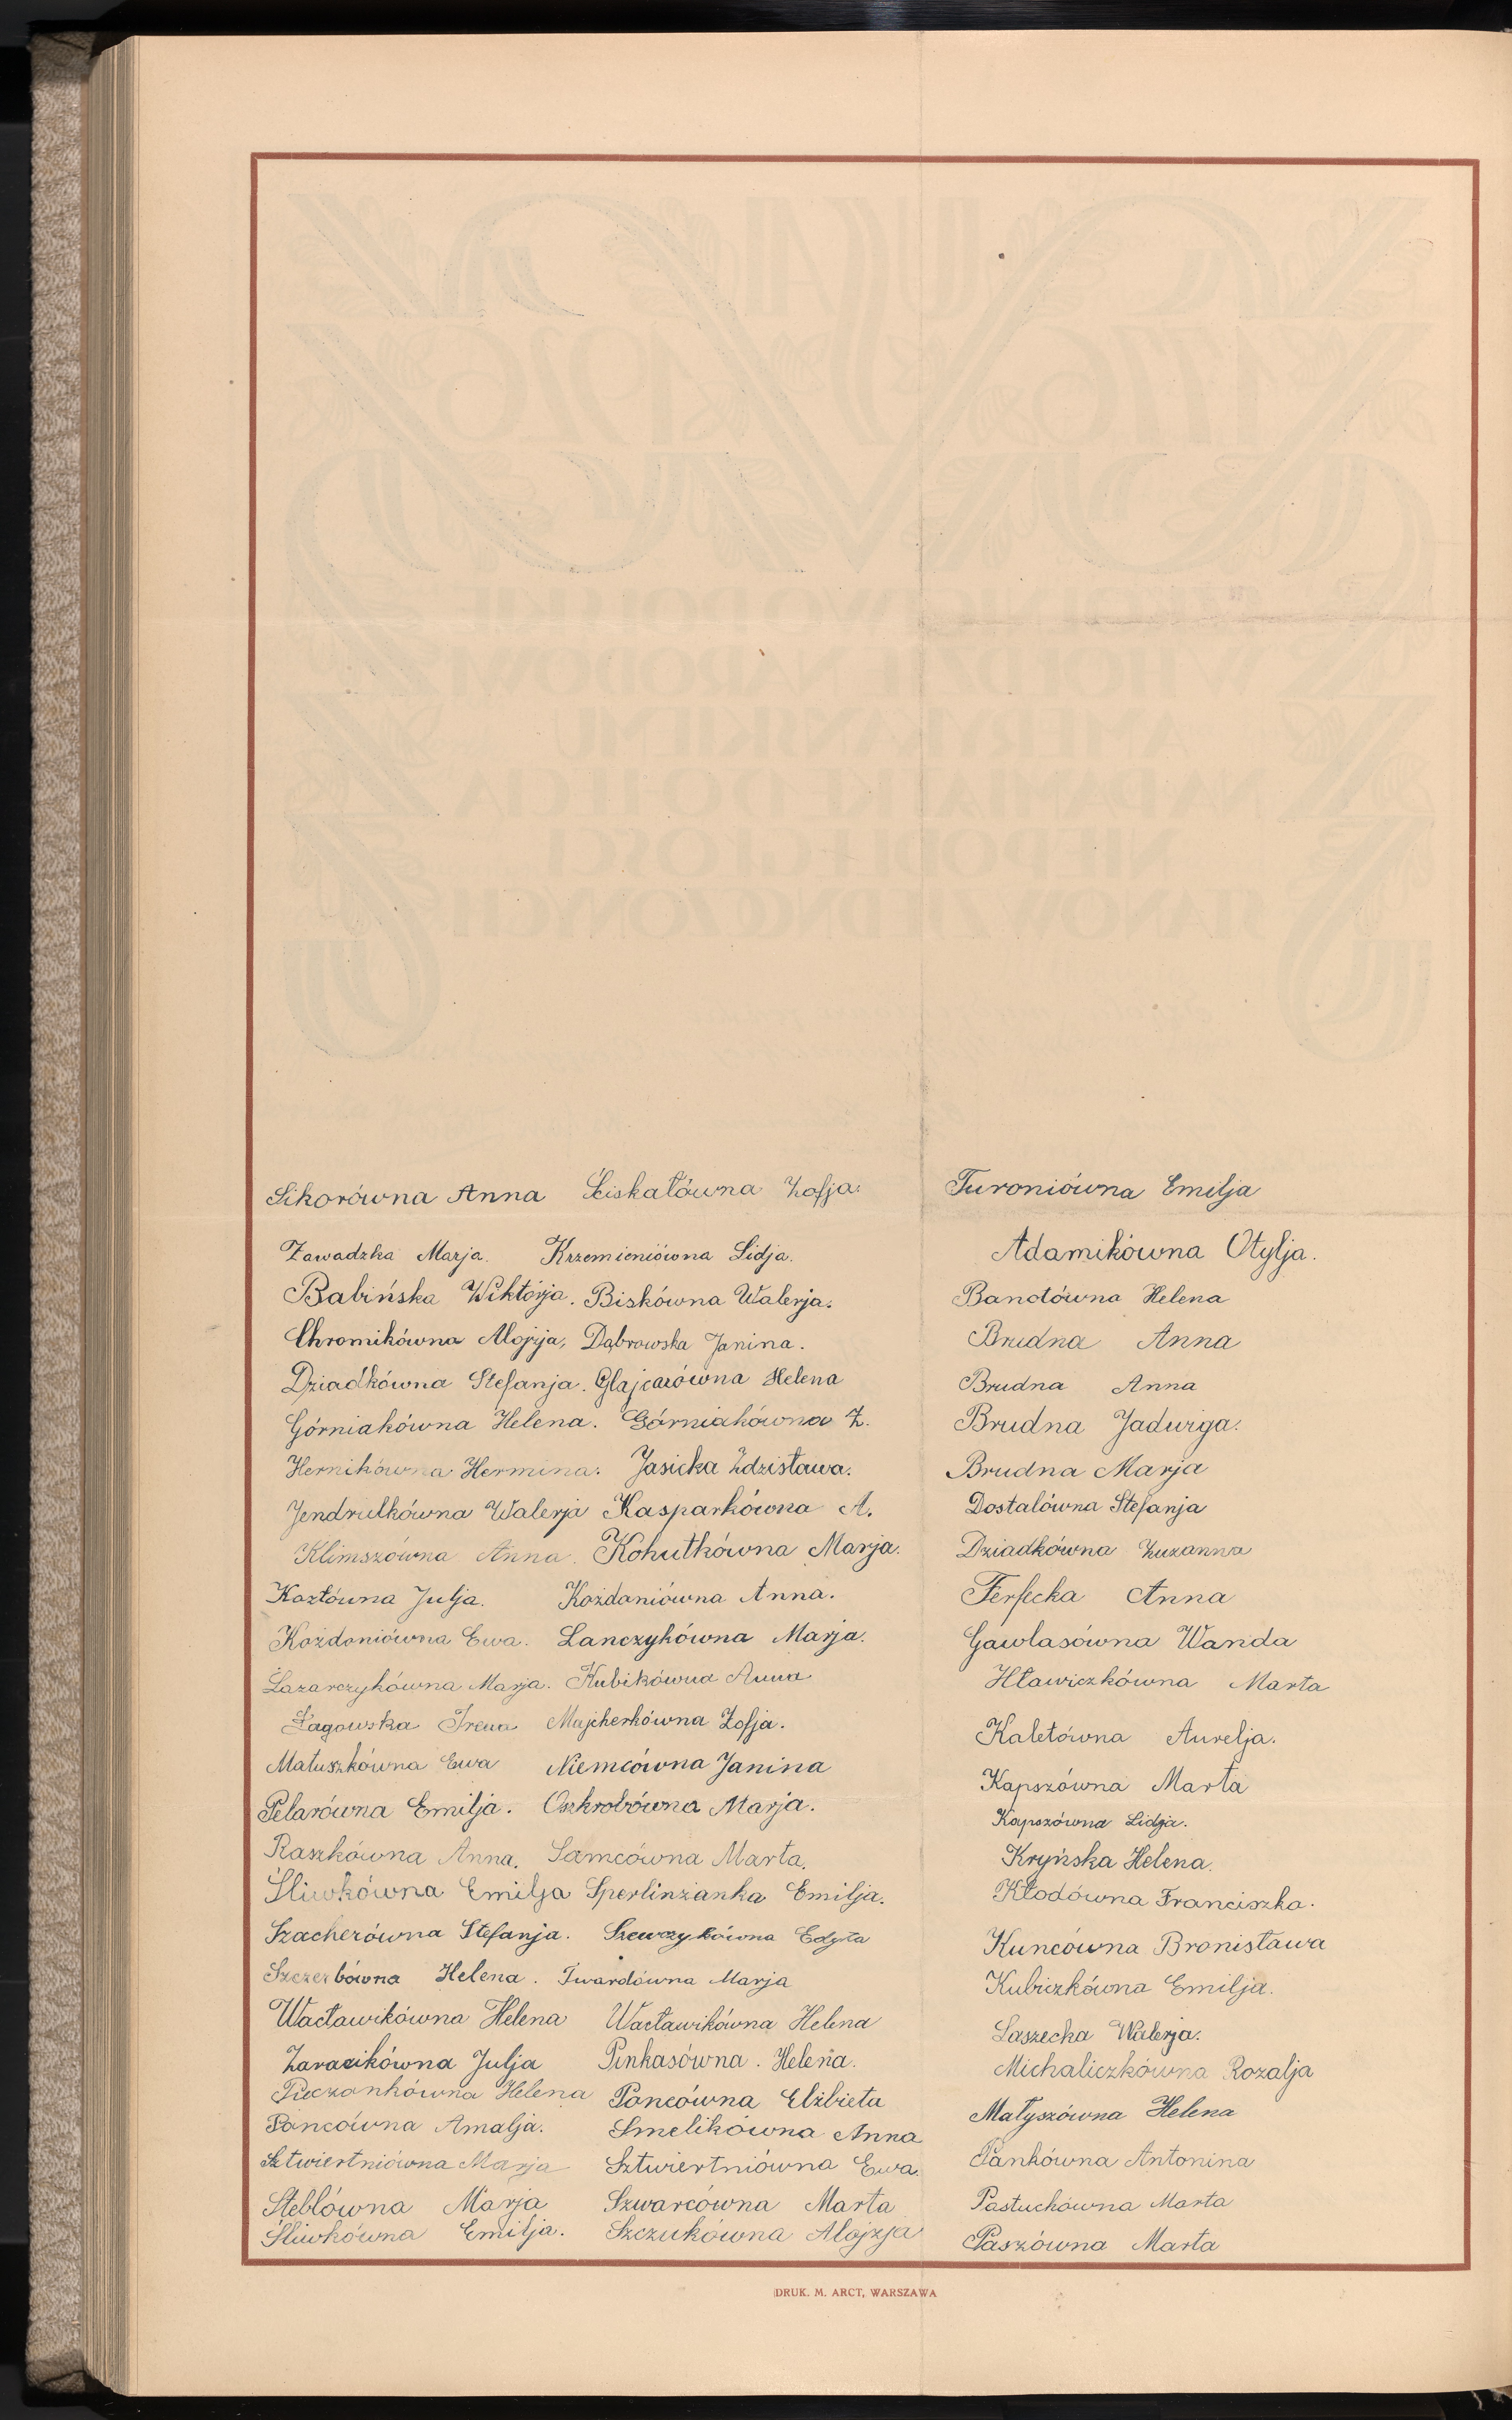 Sikorówna Anna Ściskałówna Zofja.
Zawadzka Marja. Krzemieniówna Lidja.
Babińska Wiktórja. Biskówna Walerja.
Chromikówna Alojzja, Dąbrowska Janina.
Dziadkówna Stefanja. Glajcarówna Helena
Górniakówna Helena. Górniakówna Z.
Hernikówna Hermina. Jasicka Zdzisława.
Jendrulkówna Walerja Kasparkówna A.
Klimszówna Anna. Kohutkówna Marja.
Kozłówna Julja. Kożdaniówna Anna.
Kożdoniówna Ewa. Lanczykówna Marja.
Lazarczykówna Marja. Kubikówna Anna
Łagowska Irena Majcherkówna Zofja.
Matuszkówna Ewa Niemcówna Janina
Pelarówna Emilja. Oszkrobówna Marja.
Raszkówna Anna. Samcówna Marta.
Śliwkówna Emilja Sperlinżanka Emilja.
Szacherówna Stefanja. Szewczykówna Edyta
Szczerbówna Helena. Twardówna Marja
Wacławikówna Helena Wacławikówna Helena
Zaracikówna Julja Pinkasówna. Helena.
Pieczonkówna Helena Poncówna Elżbieta
Poncówna Amalja. Smelikówna Anna
Sztwiertniówna Marja Sztwiertniówna Ewa.
Steblówna Marja Szwarcówna Marta
Śliwkówna Emilja. Szczukówna Alojzja
Turoniówna Emilja
Adamikówna Otylja.
Banotówna Helena
Brudna Anna
Brudna Anna
Brudna Jadwiga.
Brudna Marja
Dostalówna Stefanja
Dziadkówna Zuzanna
Ferfecka Anna
Gawlasówna Wanda
Hławiczkówna Marta
Kaletówna Aurelja.
Kapszówna Marta
Kapszówna Lidja.
Kryńska Helena.
Kłodówna Franciszka.
Kuncówna Bronisława
Kubiczkówna Emilja.
Laszecka Walerja.
Michaliczkówna Rozalja
Matyszówna Helena
Pankówna Antonina
Pastuchówna Marta
Paszówna Marta
DRUK. M. ARCT, WARSZAWA